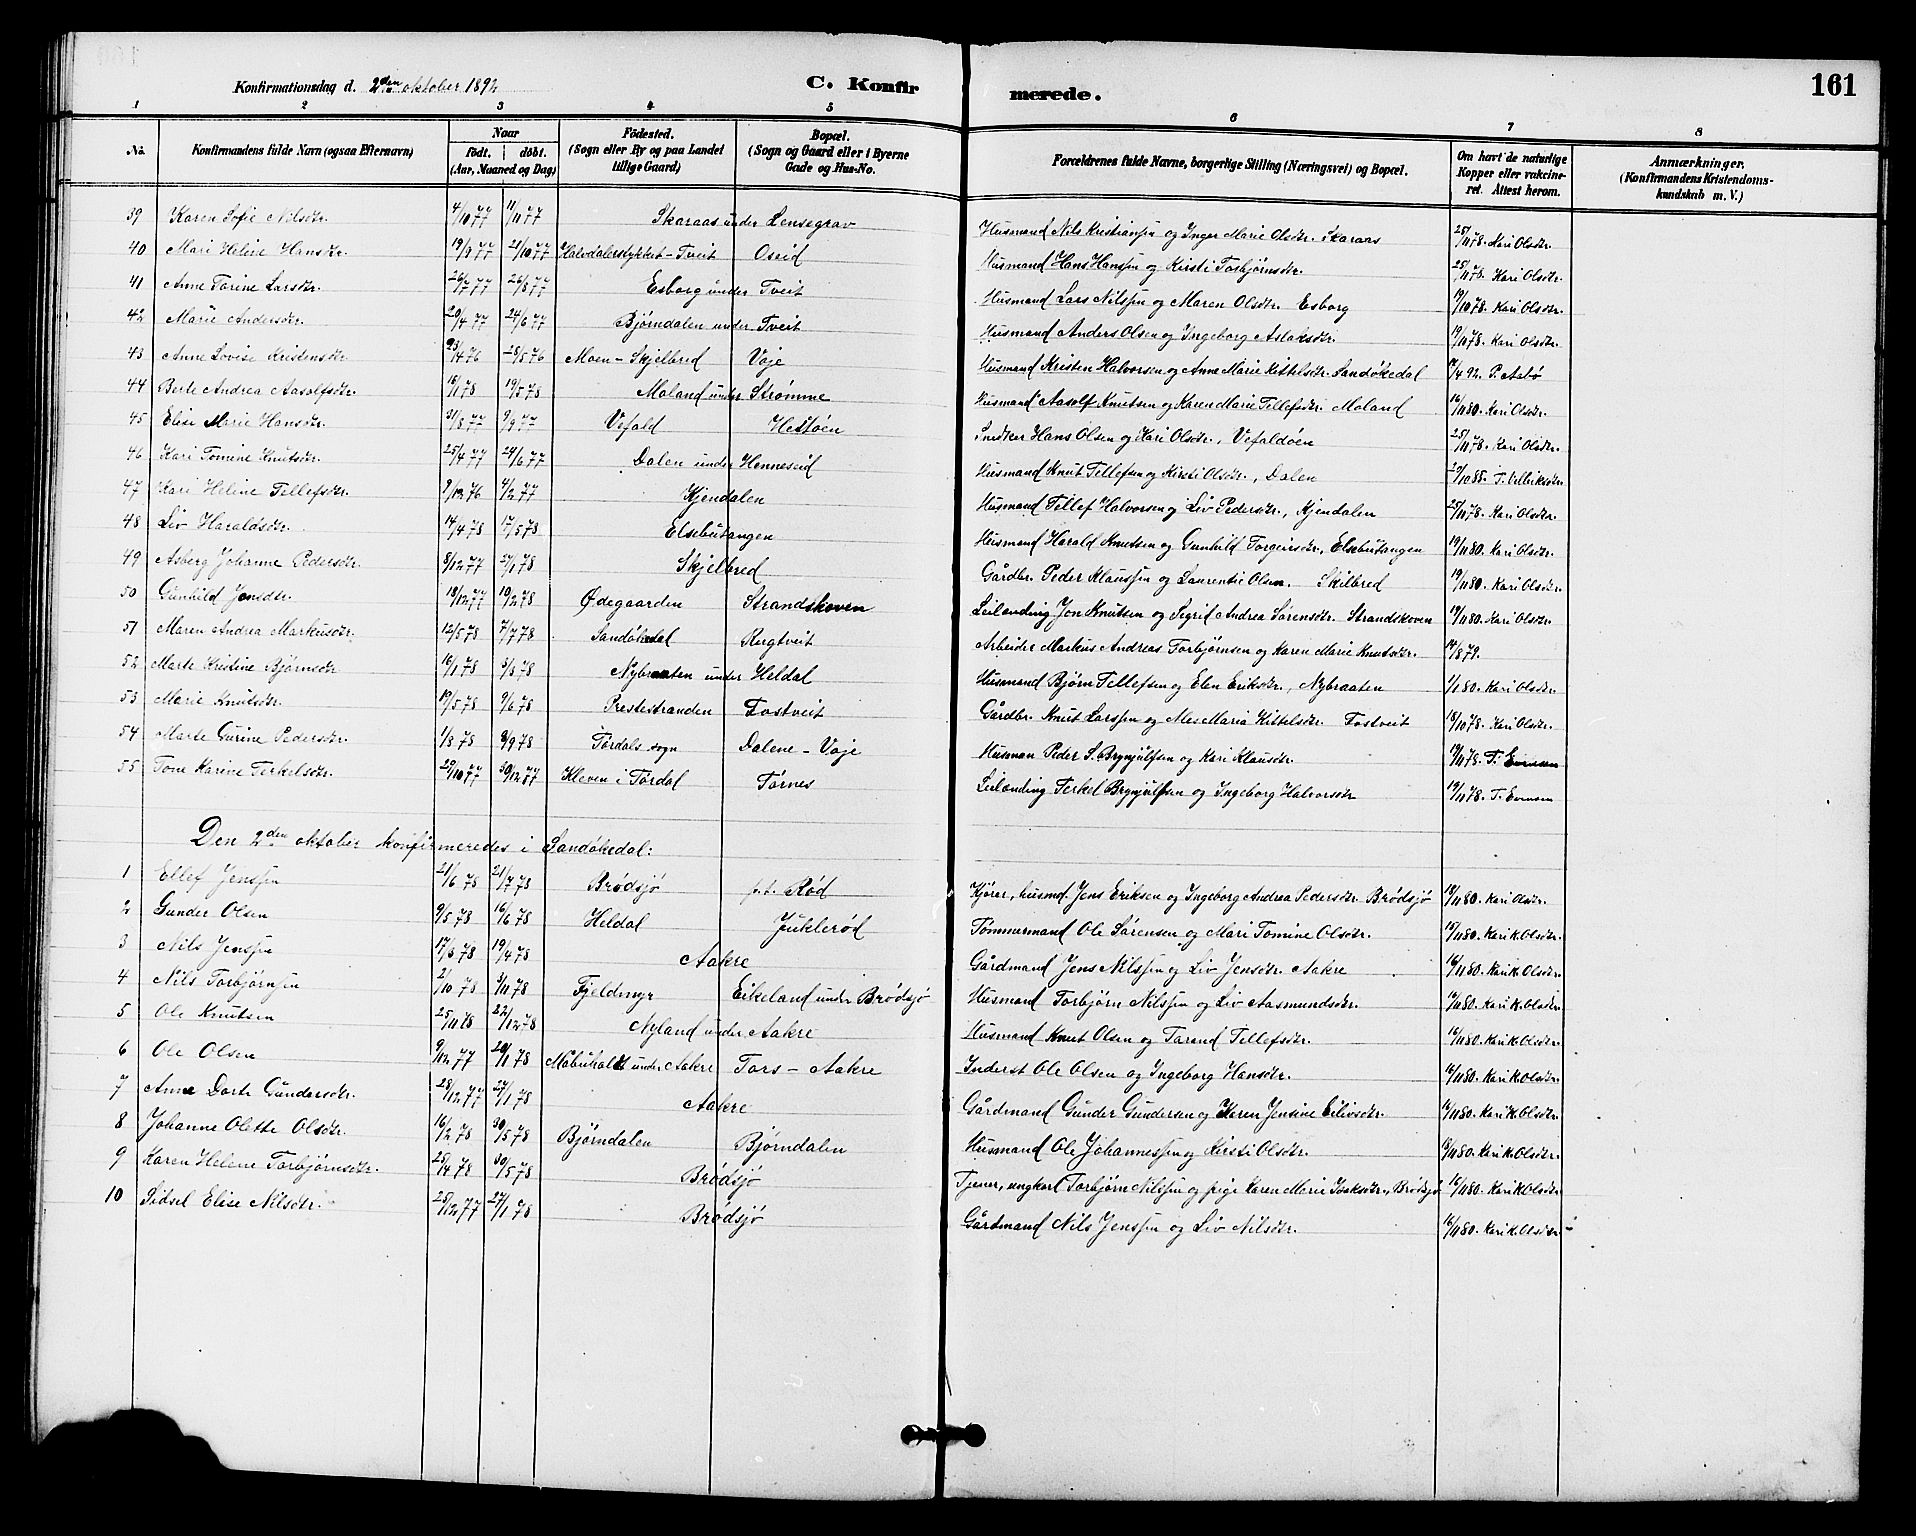 161
Konfirmationsdag d. 2den oktober 1892
C. Konfirmerede.
1 2 3 4 5 6 7 8
No. Konfirmandens fulde Navn (ogsaa Efternavn) Naar født. døbt. (Aar, Maaned og Dag) Fødested. (Sogn eller By og paa Landet tillige Gaard) Bopæl. (Sogn og Gaard eller i Byerne Gade og Hus-No. Forældrenes fulde Navne, borgerlige Stilling (Næringsvei) og Bopæl. Om havt de naturlige Kopper eller vakcineret. Attest herom. Anmærkninger. (Konfirmandens Kristendomskundskab m. V.)
39 Karen Sofie Nilsdtr. 4/10 77 11/11 77 Skaraas under Lensegrav Husmand Nils Kristiansen og Inger Marie Olsdtr. Skaraas 25/11 78. Kari Olsdtr.
40 Mari Heline Hansdtr. 19/9 77 21/10 77 Halvdalerstykket - Tveit Oseid Husmand Hans Hanssen og Kirsti Torbjørnsdtr. 25/11 78. Kari Olsdtr.
41 Anne Torine Larsdtr. 26/7 77 26/8 77 Esborg under Tveit Husmand Lars Nilssen og Maren Olsdtr. Esborg 19/10 78. Kari Olsdtr.
42 Marie Andersdtr. 20/4 77 24/6 77 Bjørndalen under Tveit Husmand Anders Olsen og Ingeborg Aslaksdtr. 19/11 78. Kari Olsdtr.
43 Anne Lovise Kristensdtr 23/4 76 28/5 76 Moen - Skjelbred Vaje Husmand Kristen Halvorsen og Anne Marie Kittelsdtr. Sandøkedal /4 92. P. Aabø
44 Berte Andrea Aasolfsdtr. 19/1 78 19/5 78 Moland under Strømme Husmand Aasolf Knutsen og Karen Marie Tellefsdtr. Moland 16/11 80. Kari Olsdtr.
45 Elise Marie Hansdtr. 31/8 77 9/9 77 Vefald Hestøen Snedker Hans Olsen og Kari Olsdtr., Vefaldøen 25/11 78. Kari Olsdtr.
46 Kari Tomine Knutsdtr. 25/4 77 24/6 77 Dalen under Henneseid Husmand Knut Tellefsen og Kirsti Olsdtr., Dalen 29/10 85. T.
47 Kari Heline Tellefsdtr. 9/12 76 4/2 77 Kjendalen Husmand Tellef Halvorsen og Liv Pedersdtr., Kjendalen 25/11 78. Kari Olsdtr.
48 Liv Haraldsdtr. 14/4 78 17/5 78 Elsebutangen Husmand Harald Knutsen og Gunhild Torgeirsdtr., Elsebutangen 19/11 80. Kari Olsdtr.
49 Asberg Johanne Pedersdtr. 8/12 77 27/1 78 Skjelbred Gårdbr. Peder Klaussen og Laurentie Olsen. Skilbred 19/11 80. Kari Olsdtr.
50 Gunhild Jonsdtr. 18/12 77 10/2 78 Ødegaarden Strandskoven Leilending Jon Knutsen og Sigrid Andrea Sørensdtr. Strandskoven 19/11 80. Kari Olsdtr.
51 Maren Andrea Markusdtr. 12/5 78 7/7 78 Sandøkedal Rugtveit Arbeider Markus Andreas Torbjørnsen og Karen Marie Knutsdtr. 14/8 79.
52 Marte Kristine Bjørnsdtr 16/1 78 3/3 78 Nybraaten under Heldal Husmand Bjørn Tellefsen og Elen Eriksdtr., Nybraaten 1/1 80. Kari Olsdtr.
53 Marie Knutsdtr. 19/5 78 9/6 78 Prestestranden Tostveit Gårdbr. Knut Larssen og Mes Maria Kittelsdtr. Tostveit 18/10 78. Kari Olsdtr.
54 Marte Gurine Pedersdtr. 1/8 78 8/9 78 Tørdals sogn Dalene - Vaje Husman Peder S. Brynjulfsen og Kari Klausdtr. 19/11 78. T. Evensen
55 Tone Karine Terkelsdtr. 29/10 77 30/12 77 Kleven i Tørdal Tørnes Leilending Terkel Brynjulfsen og Ingeborg Halvorsdtr 19/11 78. T. Evensen
Den 2den oktober konfirmeredes i Sandøkedal:
1 Ellef Jenssen 21/6 78 21/7 78 Brødsjø p.t. Rød Kjører, husmd. Jens Eriksen og Ingeborg Andrea Pedersdtr. Brødsjø 18/11 80. Kari Olsdtr.
2 Gunder Olsen 9/5 78 16/6 78 Heldal Juklerød Tømmermand Ole Sørensen og Mari Tomine Olsdtr. 16/11 80. Kari K. Olsdtr.
3 Nils Jenssen 17/3 78 19/4 78 Aakre Gårdmand Jens Nilssen og Liv Jensdtr. Aakre 16/11 80. Kari K. Olsdtr.
4 Nils Torbjørnsen 2/10 78 3/11 78 Fjeldmyr Eikeland under Brødsjø Husmand Torbjørn Nilssen og Liv Aasmundsdtr. 16/11 80. Kari K. Olsdtr.
5 Ole Knutsen 25/11 78 22/12 78 Nyland under Aakre Husmand Knut Olsen og Tarand Tellefsdtr. 16/11 80. Kari K. Olsdtr.
6 Ole Olsen 9/12 77 20/1 78 under Aakre Tors - Aakre Inderst Ole Olsen og Ingeborg Hansdtr. 16/11 80. Kari K. Olsdtr.
7 Anne Dorte Gundersdtr. 28/12 77 27/1 78 Aakre Gårdmand Gunder Gundersen og Karen Jensine Eilivsdtr. 16/11 80. Kari K. Olsdtr.
8 Johanne Olette Olsdtr. 16/2 78 30/5 78 Bjørndalen Bjørndalen Husmand Ole Johannessen og Kirsti Olsdtr. 16/11 80. Kari K. Olsdtr.
9 Karen Helene Torbjørnsdtr. 25/4 78 30/5 78 Brødsjø Tjener, ungkarl Torbjørn Nilssen og pige Karen Marie Isaksdtr., Brødsjø 16/11 80. Kari K. Olsdtr
10 Sidsel Elise Nilsdtr. 25/12 77 27/1 78 Brødsjø Gårdmand Nils Jenssen og Liv Nilsdtr. 16/11 80. Kari K. Olsdtr.